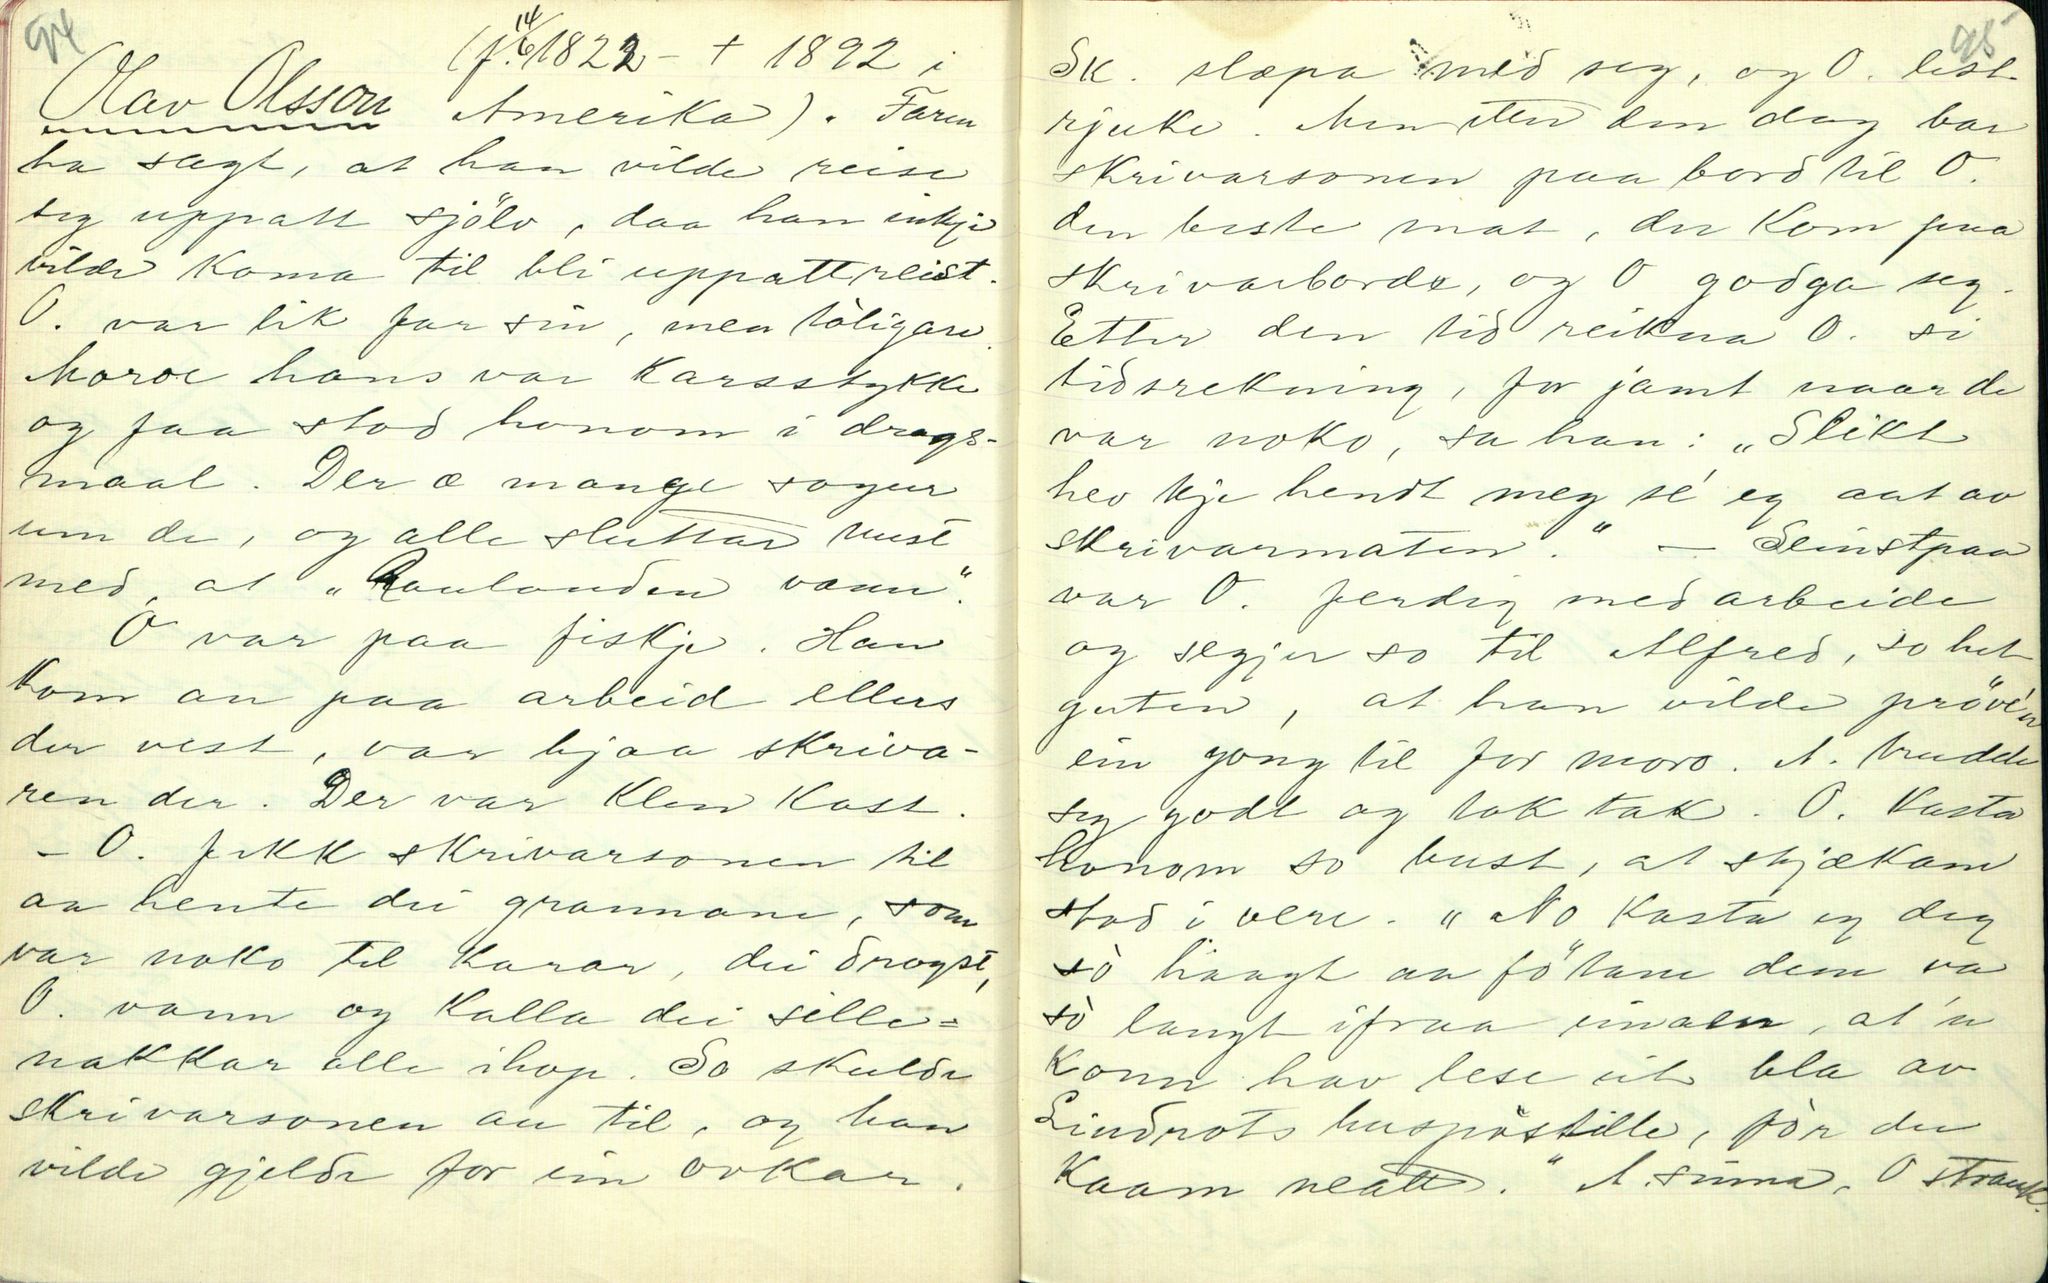 94
(f. 14/6 1822 - + 1892 i
Olav Olsson Amerika). Faren
ha sagt, at han vilde reise
seg uppatt sjölv, daa han inkje
vilde koma til bli uppattreist.
O. var lik far sin, men tòligare.
Moroe hans var karsstykke
og faa stod honom i drags-
maal. Der æ mange sogur
um de, og alle sluttar mest
med, at "Raulanden vann".
O var paa fiskje. Han
kom an paa arbeid ellers
der vest, var hjaa skriva-
ren der. Der var klen kost.
- O. fekk skrivarsonen til
aa hente dei grannane, som
var noko til karar, dei drogst,
O. vann og kalla dei sille=
nakkar alle ihop. So skulde
skrivarsonen au til, og han
vilde gjelde for ein ovkar.
95
Sk. slæpa med seg, og O. lest
rjuke. Men etter den dag bar
skrivarsonen paa bord til O.
den beste mat, der kom paa
skrivarborde, og O godga seg.
Etter den tid reikna O. si
tidsrekning, for jamt naar de
var noko, sa han: "Slikt
hev kje hendt meg sé eg aat av
skrivarmaten." - Seinstpaa
var O. ferdig med arbeide
og segjer so til Alfred, so het
guten, at han vilde pröve'n
ein gong til for moro. A. trudde
seg godt og tok tak. O. kasta
honom so bust, at skjækane
stod i vere. "No kasta eg deg
sò haagt aa fö'tane dem va
sò langt ifraa einaen, at'n
konn hav lese eit bla av
Lindrots huspostille, fòr den
kaam neatt." A. sinna, O strauk.